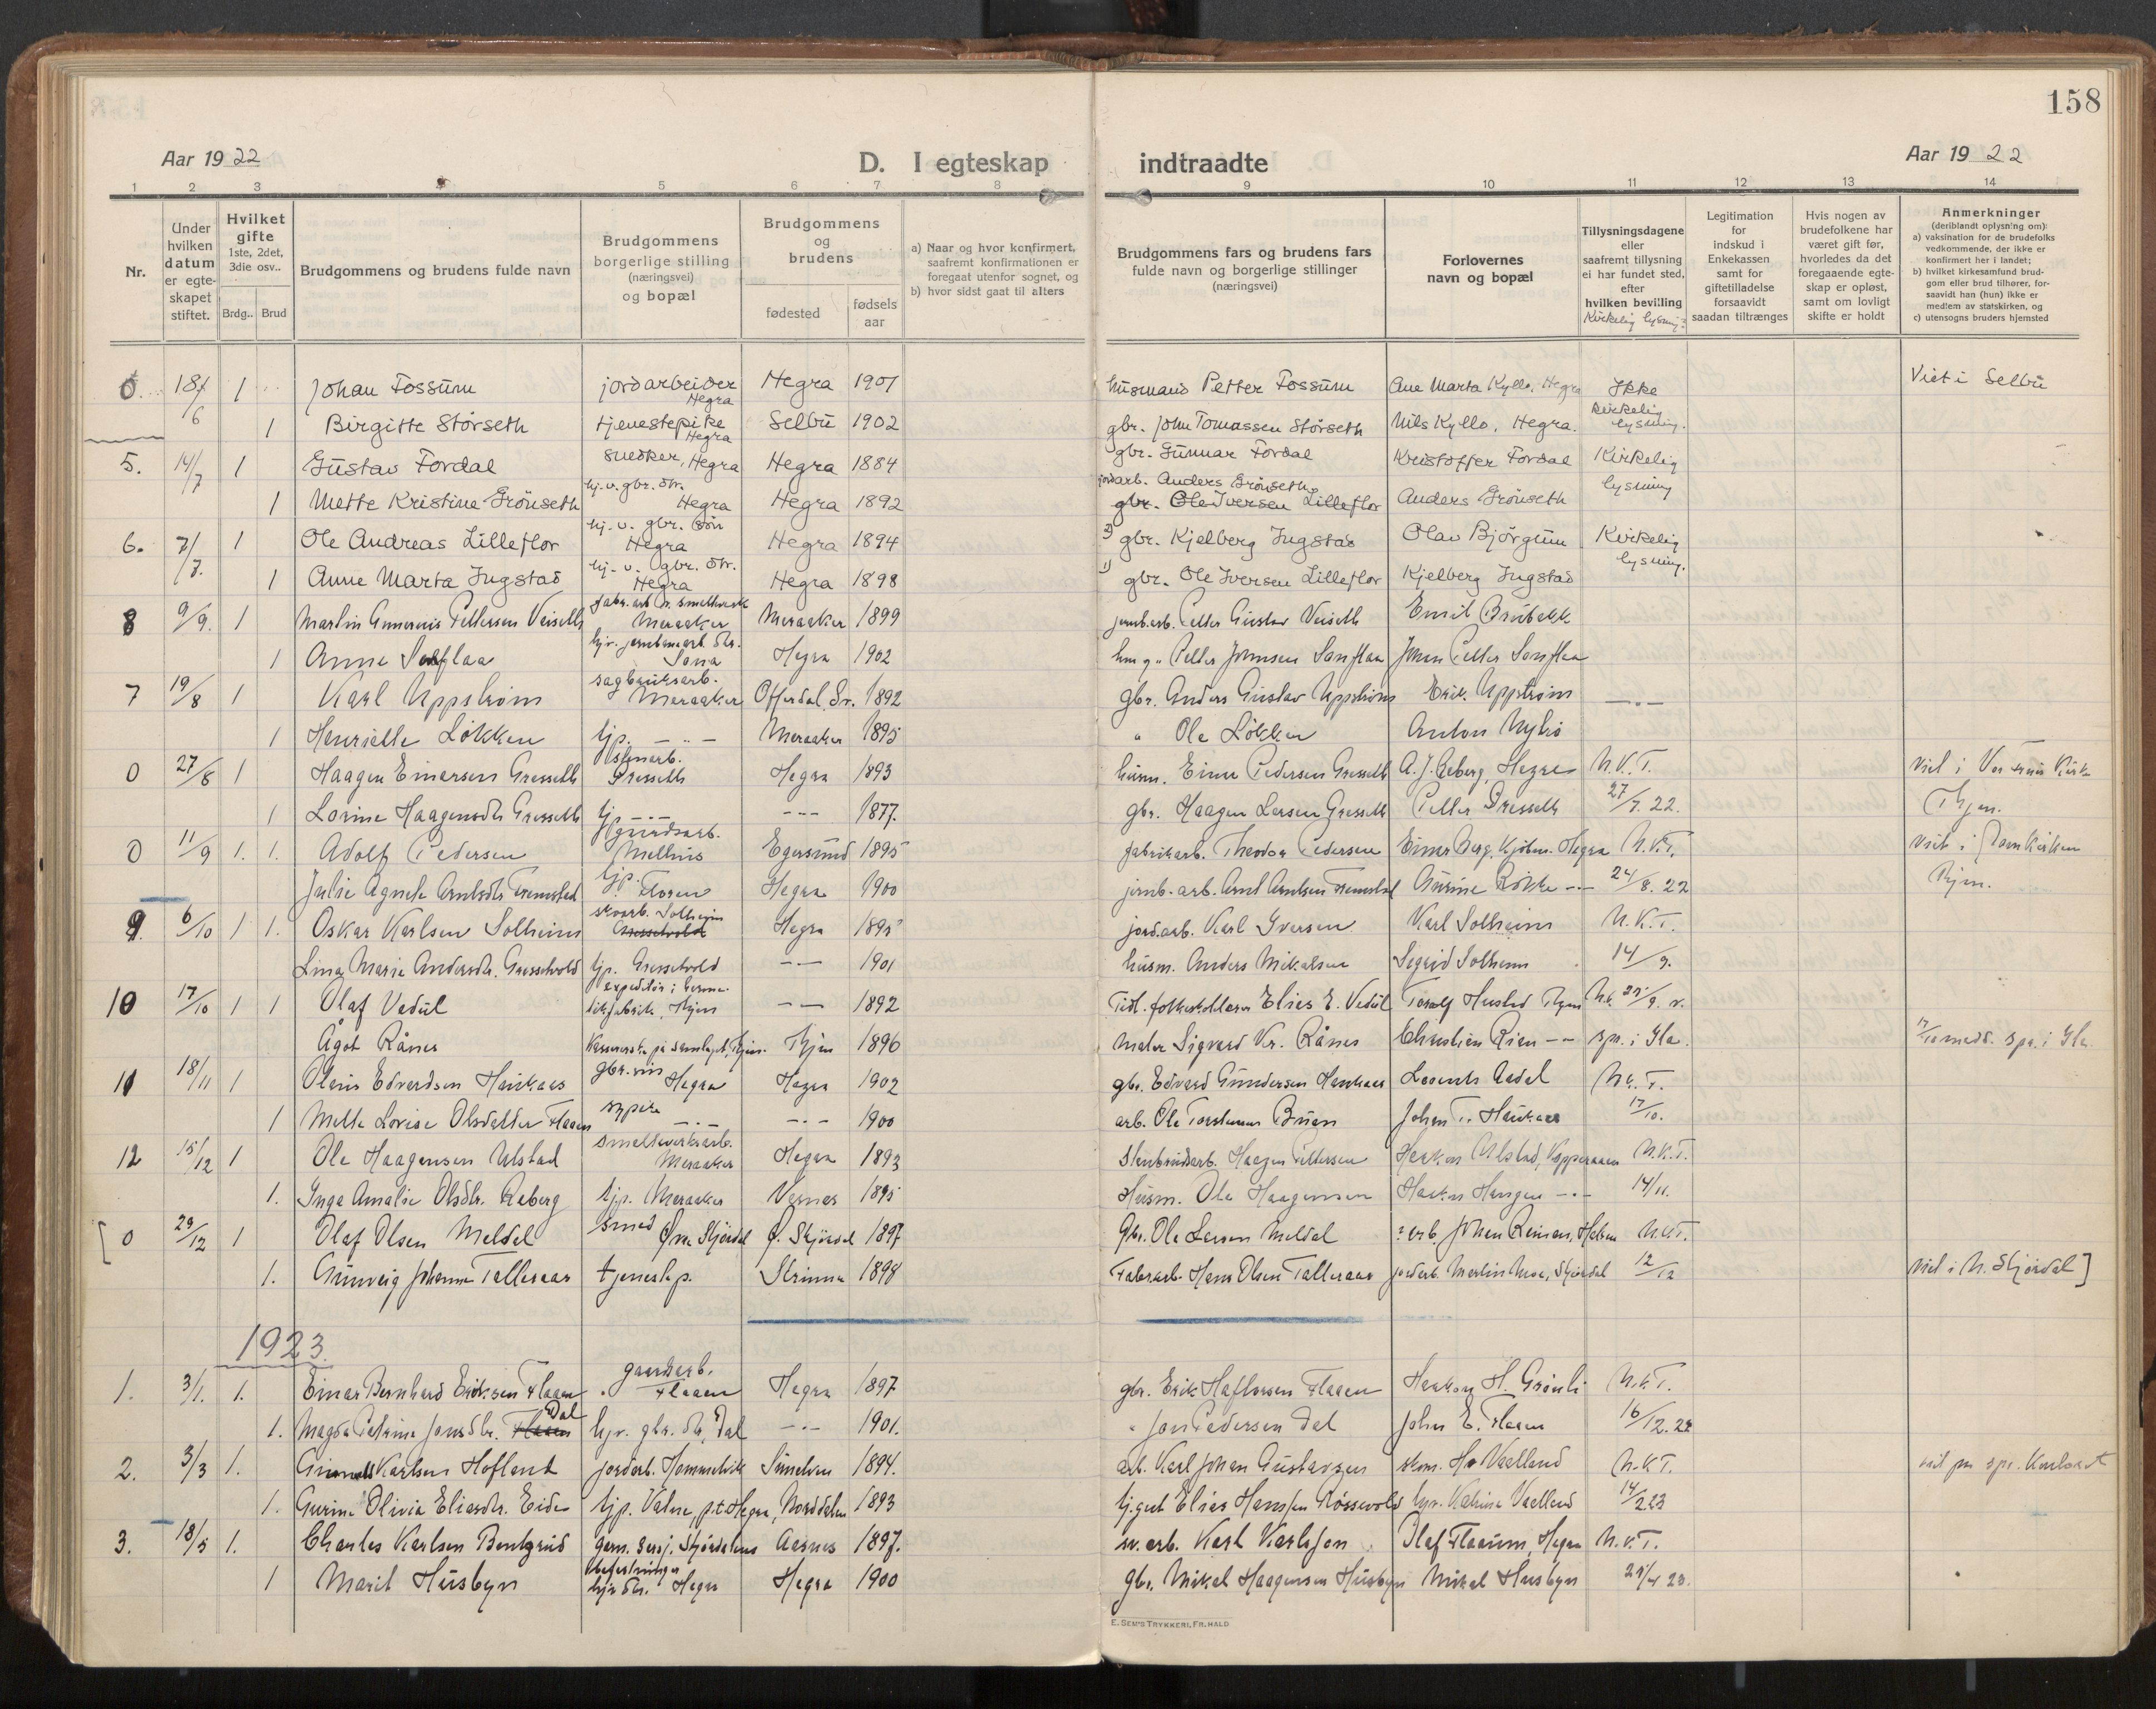 158
Aar 1922
D. I egteskap indtraadte
Aar 1922
1 2 3 4 5 6 7 8 9 10 11 12 13 14
Nr.
Under hvilken datum er egteskapet stiftet.
Hvilket gifte 1ste, 2det, 3die osv..
Brdg.. Brud
Brudgommens og brudens fulde navn
Brudgommens borgerlige stilling (næringsvei) og bopæl
Brudgommens og brudens
fødested
fødsels aar
a) Naar og hvor konfirmert, saafremt konfirmationen er foregaat utenfor sognet, og
b) hvor sidst gaat til alters
Brudgommens fars og brudens fars fulde navn og borgerlige stillinger (næringsvei)
Forlovernes navn og bopæl
Tillysningsdagene eller saafremt tillysning ei har fundet sted, efter hvilken bevilling
Kirkelig lysning?
Legitimation for indskud i Enkekassen samt for giftetilladelse forsaavidt saadan tiltrænges
Hvis nogen av brudefolkene har været gift før, hvorledes da det foregaaende egteskap er opløst, samt om lovligt skifte er holdt
Anmerkninger (deriblandt oplysning om):
a) vaksination for de brudefolks vedkommende, der ikke er konfirmert her i landet;
b) hvilket kirkesamfund brudgom eller brud tilhører, forsaavidt han (hun) ikke er medlem av statskirken, og
c) utensogns bruders hjemsted
0. 18/6 1 Johan Fossum jordarbeider Hegra Hegra 1901 husmand Petter Fossum Ane Marta Kyllo, Hegra Ikke kirkelig lysning. Viet i Selbu
1 Birgitte Störseth tjenestepike Hegra Selbu 1902 gbr. John Tomassen Störseth Nils Kyllo, Hegra.
5. 14/7 1 Gustav Fordal snedker, Hegra Hegra 1884 gbr. Gunnar Fordal Kristoffer Fordal Kirkelig lysning
1 Mette Kristine Grönseth hj. v. gbr. dtr. Hegra Hegra 1892 jordarb. Anders Grönseth. gbr. Ole Iversen Lilleflor Anders Grönseth
6. 7/7. 1 Ole Andreas Lilleflor hj. v. gbr. sön Hegra Hegra 1894 2) gbr. Kjelberg Ingstad Olav Björgum Kirkelig lysning.
1 Anne Marta Ingstad hj. v. gbr. dtr. Hegra Hegra 1898 1) gbr. Ole Iversen Lilleflor Kjelberg Ingstad
8 9/9. 1 Martin Pettersen Veiseth Meraaker Meraaker 1899 jernb.arb. Petter Gustav Veiseth Emil Brubakk
1 Anne Sonflaa hjv. jernbanearb. dtr. Sona Hegra 1902 Petter Johnsen Sonflaa Johan Petter Sonflaa
7 19/8 1 Karl Uppstrøm sagbruksarb. Meraaker Offerdal, Sv. 1892 gbr. Anders Gustav Uppstrøm Erik Uppstrøm —"—
1 Henriette Løkken tjp. —"— Meraaker 1895 " Ole Løkken Anton Nybro
0 27/8 1 Haagen Einarsen Gresseth stenarb. Gresseth Hegra 1893 husm. Einar Pedersen Gresseth A. J. Reberg, Hegra N.K.T. viet i Vor Frue Kirke
1 Lovine Haagensdtr Gresseth tjp —"— —"— 1877. gbr. Haagen Larsen Gresseth Petter Gresseth 27/7. 22. Thjem.
0 11/9 1. 1. Adolf Pedersen grundarb. Melhus Egersund 1895 fabrikarb. Theodor Pedersen Einar Berg, Kjøbm. Hegra N.K.T. viet i Domkirken
Julie Agnete Arntsdtr Fremstad tjp. Floren Hegra 1900 jernb. arb. Arnt Arntsen Fremstad Gurine Rokke —"— 24/8. 22 Thjem.
9. 6/10 1 1. Oskar Karlsen Solheim skoarb. Solheim Gressetvold Hegra 1895 jordarb. Karl Iversen Karl Solheim N.K.T.
Lina Marie Andersdtr. Gressetvold tjp. Gressetvold —"— 1901 husm. Anders Mikalsen Sigrid Solheim 14/9.
10 17/10 1 1 Olaf Vedul —"— 1892 Elias E. Vedul
Ågot Rånes Thjem 1896 Maler Sigvard Rånes Christian Rian —"— spr. i Ila. 17/10 spr. i Ila.
11 18/11 1 Olaus Edvardsen Haukaas gbr. søn Hegra Hegra 1902 gbr. Edvard Gundersen Haukaas Lorents Aadal N.K.T.
1 Mette Lovise Olsdatter Flaaen sypike —"— —"— 1900 arb. Ole Torstensen Bruen Johan T. Haukaas 17/10.
12 15/12 1 Ole Haagensen Ulstad smelteverksarb. Meraaker Hegra 1893 Stenbrudsarb. Haagen Pettersen Haakon Ulstad, Kopperaaen N.K.T.
1. Inga Amalie Olsdtr. Reberg tjp. Meraaker Værnes 1895 Husm. Ole Haagensen Haakon Haugen —"— 14/11.
[ 0 29/12 1 Olaf Olsen Meldal smed Øvre Stjørdal Ø. Stjørdal 1897 Gbr. Ole Larsen Meldal Johan N.K.T.
1. Gunveig Johanne Talleraas tjenestep. Strinna 1898 Fabr.arb. Hans Olsen Talleraas jordarb. Martin Moe, Stjørdal 12/12 viet i N. Stjørdal ]
1923.
1. 3/1. 1. Einar Bernhard Eriksen Flaaen gaardarb. Flaaen Hegra 1897 gbr. Erik Haflorsen Flaaen Haakon H. Grønli N.K.T.
1. Magda Petrine Jonsdtr. Flaaen Dal hjv. gbr. dtr, Dal —"— 1901. " Jon Pedersen Dal John E. Flaaen 16/12. 22
2. 3/3 1. Karlsen Hofland jordarb. Hommelvik Sunelven 1894. arb. Karl Johan Gustavsen skom. Vaelland N.K.T. viet pr spr.
1. Gurine Olivia Eliasdtr. Eide tjp. p.t. Hegra, Norddalen 1893 Elias Hanssen Røssevold Katrine Vaelland 14/2 23
3. 18/5 1. Charles Karlsen Bentgrud garn. sersj. Stjørdalens befestninger Aasnes 1897. sv. arb. Karl Karlsson Olaf Flaarum, Hegra N.K.T.
1 Marit Husbyn hjv dtr. Hegra Hegra 1900 gbr. Mikal Haagensen Husbyn Mikal Husbyn 25/4 23.
E. SEM'S TRYKKERI, FR.HALD